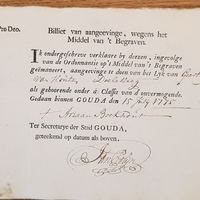 Pro Deo.
Billiet van aangeevinge, wegens het
Middel van 't Begraven.
Ik ondergeschreve verklaare by deezen, ingevolge
van de Ordonnantie op 't Middel van 't Begraven
geëmaneert, aangeevinge te doen van het Lyk van
als gehoorende onder de Classe van d'onvermogende.
Gedaan binnen GOUDA den 15 July 1785
Ter Secretarye der Stad GOUDA,
geteekend op datum als boven.